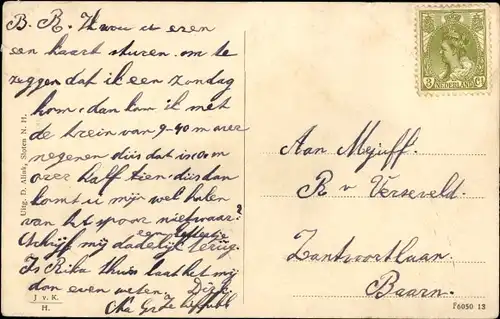 B. R. Ik wou u even
een kaart sturen om te
zeggen dat ik een zondag
kom, dan kom ik met
de trein van 9-40 m over
negenen dus dat is om
over half tien dus dan
komt u mij wel halen
van het spoor niet waar?
een lettertje
Schrijf mij dadelijk terug.
Is Rika thuis laat het mij
dan even weten. Dizk
Uitg. D. Alink, Sloten N. H.
J. v. K.
H.
8 NEDERLAND Ct
Aan Mejuff.
R v Verseveld.
Zantvoortlaan.
Baarn.
F6050 13